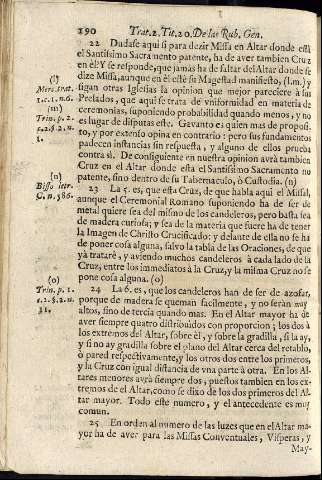 190 Trat. 2. Tit. 20. De las Rub. Gen.
22 Dudase aqui si para dezir Missa en Altar donde està
el Santissimo Sacramento patente, ha de aver tambien Cruz
en èl? Y se responde, que jamàs ha de faltar del Altar donde se
(l) dize Missa, aunque en èl estè su Magestad manifiesto, (l.m.) y
Merc. trat. sigan otras Iglesias la opinion que mejor pareciere à sus
1.c.1.n.6. Prelados, que aqui se trata de vniformidad en materia de
(m) ceremonias, suponiendo probabilidad quando menos, y no
Trin. p. 2. es lugar de disputas este. Gavanto es quien mas de proposi-
to, y por extenso opina en contrario: pero sus fundamentos
padecen instancias sin respuesta, y alguno de ellos prueba
contra sì. De consiguiente en nuestra opinion avrà tambien
Cruz en el Altar donde està el Santissimo Sacramento no
(n) patente, sino dentro de su Tabernaculo, ò Custodia. (n)
23 La 5. es, que esta Cruz, de que habla aqui el Missal,
aunque el Ceremonial Romano suponiendo ha de ser de
metal quiere sea del mismo de los candeleros, pero basta sea
de madera curiosa; y sea de la materia que fuere ha de tener
la Imagen de Christo Crucificado: y delante de ella no se ha
de poner cosa alguna, salvo la tabla de las Oraciones, de que
yà tratarè, y aviendo muchos candeleros à cada lado de la
Cruz, entre los immediatos à la Cruz, y la misma Cruz no se
(o) pone cosa alguna. (o)
Trin. p. 1. 24 La 6. es, que los candeleros han de ser de azofar,
porque de madera se queman facilmente, y no seràn muy
altos, sino de tercia quando mas. En el Altar mayor ha de
aver siempre quatro distribuidos con proporcion; los dos à
los extremos del Altar, sobre èl, y sobre la gradilla, si la ay,
y si no ay gradilla sobre el plano del Altar cerca del retablo,
ò pared respectivamente, y los otros dos entre los primeros,
y la Cruz con igual distancia de vna parte à otra. En los Al-
tares menores avrà siempre dos, puestos tambien en los ex-
tremos de el Altar, como se dixo de los dos primeros del Al-
tar mayor. Todo este numero, y el antecedente es muy
comun.
25 En orden al numero de las luzes que en el Altar ma-
yor ha de aver para las Missas Conventuales, Visperas, y
May-